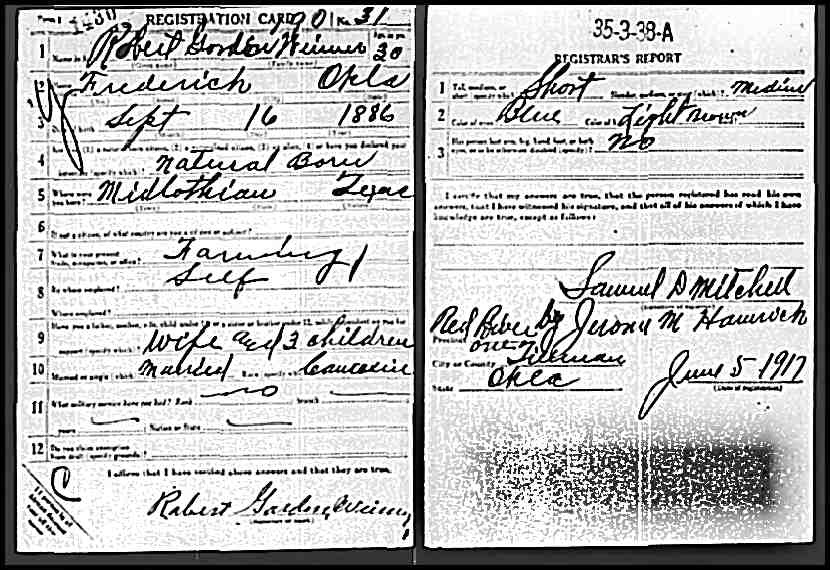 1430 REGISTRATION CARD No. 31
1 Name in full Robert Gordon Weimer Age in yrs 30
2 Frederick Okla
3 Date of birth Sept 16 1886
4 Natural Born
5 Where were you born? Midlothian Texas
6 If not a citizen, of what country are you a citizen or subject?
7 What is your present trade, occupation, or office? Farming 1
8 By whom employed? Self
Where employed?
9 Have you a father, mother, wife, child under 12, or a sister or brother under 12, solely dependent on you for
support (specify which)? Wife and 3 children
10 Married or single (which)? Married Race (specify which)? Caucasian
11 What military service have you had? Rank no branch
years Nation or State
12 Do you claim exemption from draft (specify grounds)?
I affirm that I have verified above answers and that they are true.
C
Robert Gordon Weimer
35-3-38-A
REGISTRAR'S REPORT
1 Tall, medium, or short (specify which)? Short Slender, medium, or stout (which)? Medium
2 Color of eyes Blue Color of hair Light Brown
3 Has person lost arm, leg, hand, foot, or both eyes, or is he otherwise disabled (specify)? No
I certify that my answers are true, that the person registered has read his own
answers, that I have witnessed his signature, and that all of his answers of which I have
knowledge are true, except as follows:
Samuel D Mitchell
by Jerome M
Precinct Red River one
City or County Tillman
State Okla
June 5 1917
(Date of registration)